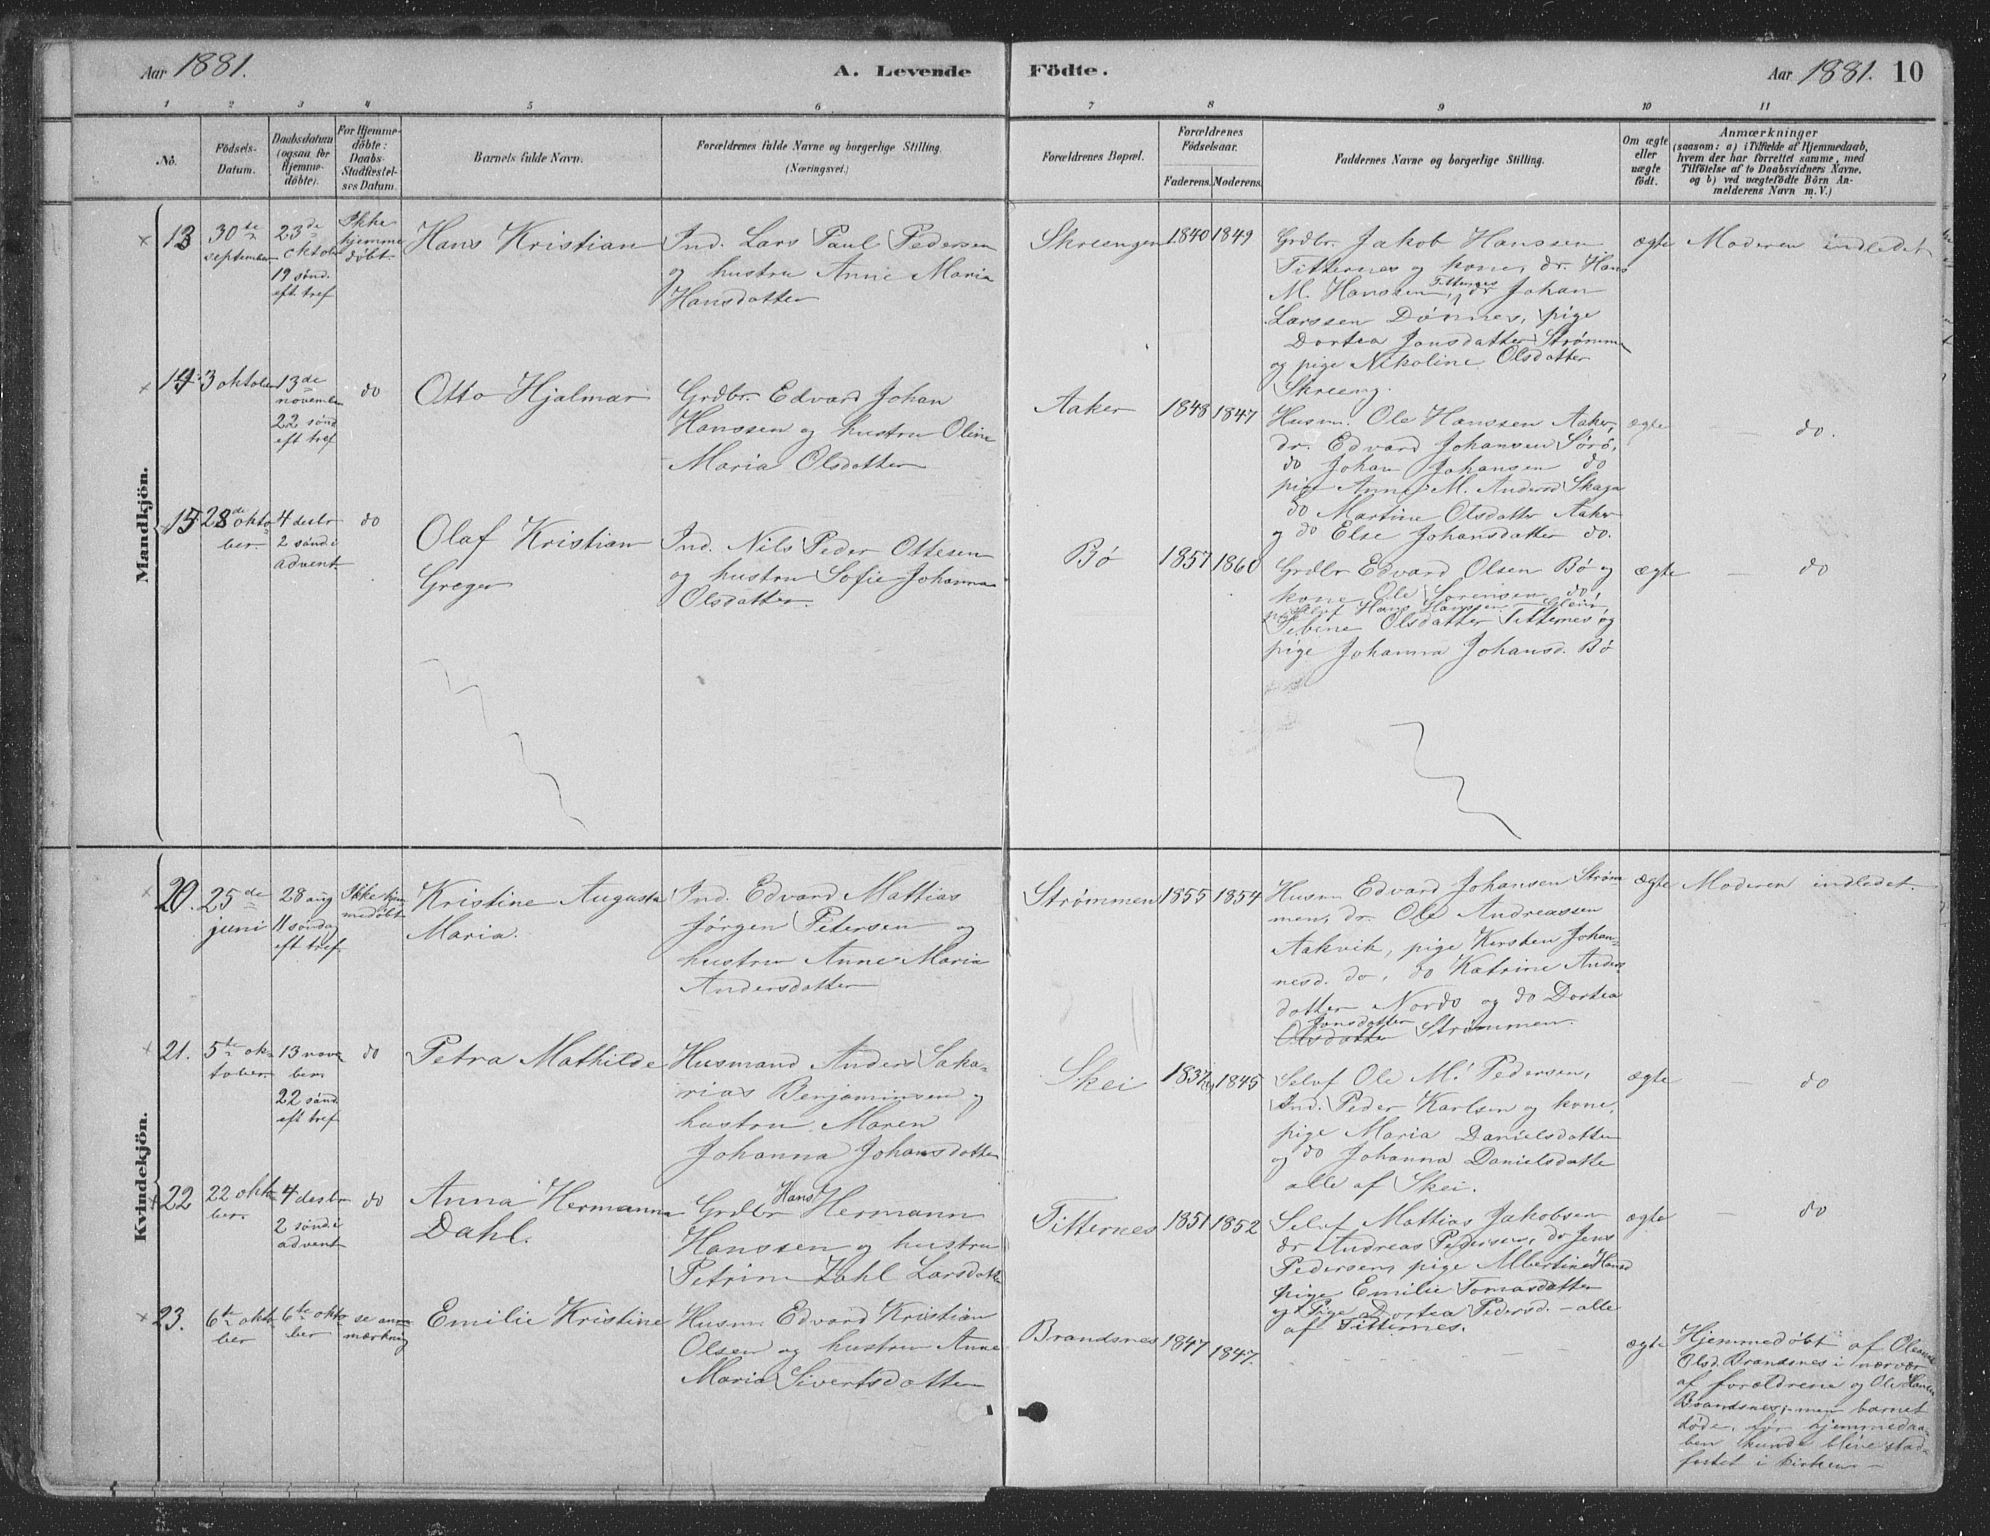 Aar 1881.
A. Levende Födte.
Aar 1881. 10
1 2 3 4 5 6 7 8 9 10 11
No.
Födsels-
Datum.
Daabsdatum
(ogsaa for
Hjemme-
döbte).
For Hjemme-
döbte:
Daabs-
Stadfæstel-
ses Datum.
Barnets fulde Navn.
Forældrenes fulde Navne og borgerlige Stilling.
(Næringsvei.)
Forældrenes Bopæl.
Forældrenes
Födselsaar.
Faderens. Moderens.
Faddernes Navne og borgerlige Stilling.
Om ægte
eller
uægte
födt.
Anmærkninger
(saasom: a) i Tilfælde af Hjemmedaab,
hvem der har forrettet samme, med
Tilföielse af to Daabsvidners Navne,
og b) ved uægtefödte Börn An-
melderens Navn m. V.)
Mandkjön.
13
30te
september
23de
oktob
19 sønd.
eft tref
Ikke
hjemme
døbt
Hans Kristian
Ind. Lars Paul Pedersen
og hustru Anne Maria
Hansdatter
Skreengen
1840 1849
Grdbr. Jakob Hanssen
Titternes og kone, dr. Hans
M. Hanssen, Titternes, dr Johan
Larssen Dønnes, pige
Dortea Jonsdatter Strømme
og pige Nikoline Olsdatter
Skreeng.
ægte
Moderen indledet
14
3 oktober
13de
november
22 sønd
eft tref
do
Otto Hjalmar
Grdbr. Edvard Johan
Hanssen og hustru Oline
Maria Olsdatter
Aaker
1848 1847
Husm. Ole Hanssen Aaker,
dr. Edvard Johansen Sørø,
do Johan Johansen do
pige Anne M. Andersd Skaga
do Martine Olsdatter Aaker
og do Else Johansdatter do.
ægte
— do.
15
28de okto
ber.
4 desbr
2 sønd i
advent
do
Olaf Kristian
Greger
Ind. Nils Peder Ottesen
og hustru Sofie Johanna
Olsdatter.
Bø
1857 1860
Grdbr Edvard Olsen Bø og
kone, Ole Sørensen do,
Selvf Hans Hanssen
pige Sebine Olsdatter Titternes og
pige Johanna Johansd. Bø
ægte
— do
Kvindekjön.
20.
25de
juni
28 aug
11 søndag
eft tref.
Ikke hjem
medøbt
Kristine Augusta
Maria.
Ind. Edvard Mattias
Jørgen Petersen og
hustru Anne Maria
Andersdatter
Strømmen
1855 1854
Husm Edvard Johansen Strøm
men, dr. Ole Andreassen
Aakvik, pige Kersten Johan-
nesd. do, do Katrine Anders-
datter Nordø og do Dortea
Jonsdatter
Olsdatter Strømmen.
ægte
Moderen indledet.
21.
5te ok-
tober.
13 nov-
ber.
22 sønd.
eft tref
do
Petra Mathilde
Husmand Anders Saka-
rias Benjaminsen og
hustru Maren
Johanna Johansdatter
Skei
1837 1845
Selvf Ole M. Pedersen,
Ind. Peder Karlsen og kone,
pige Maria Danielsdatter
og do Johanna Danielsdatte
alle af Skei.
ægte
— do
22
22 okto
ber.
4 desbr
2 sønd i
advent
do
Anna Hermanna
Dahl.
Grdbr Hans Hermann
Hanssen og hustru
Petrine Zahl Larsdatte
Titternes
1851 1852
Selvf Mattias Jakobsen
dr Andreas Pedersen, dr Jens
Pedersen, pige Albertine Hansd
pige Emilie Tomasdatter
og Pige Dortea Pedersd. - alle
af Titternes.
ægte
— do
23.
6te okto
ber
6te okto
ber
se an-
mærkning
Emilie Kristine
Husm. Edvard Kristian
Olsen og hustru Anne
Maria Sivertsdatter
Brandsnes
1847 1847.
ægte
Hjemmedøbt af Oleana
Olsd. Brandsnes i nærvær
af forældrene og Ole Hansen
Brandsnes, - men barnet
døde, før hjemmedaa-
ben kunde blive stad-
fæstet i kirken. -